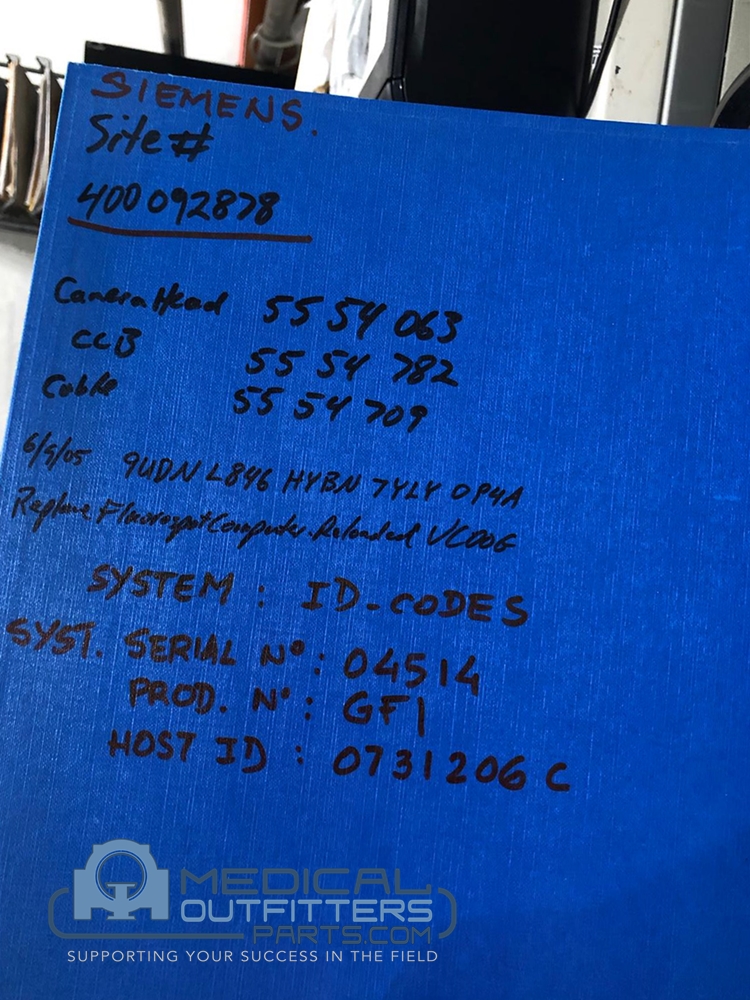 SIEMENS.
Site #
400092878
Camera Head 5554063
CCB 5554782
Cable 5554709
6/9/05 9UDN L846 HYBN 7YLY OP4A
Replace Fluorospot Computer. Reloaded VC00G
SYSTEM : ID-CODES
SYST. SERIAL Nº : 04514
PROD. Nº : GF1
HOST ID : 0731206C
MEDICAL
OUTFITTERS
PARTS.COM
SUPPORTING YOUR SUCCESS IN THE FIELD